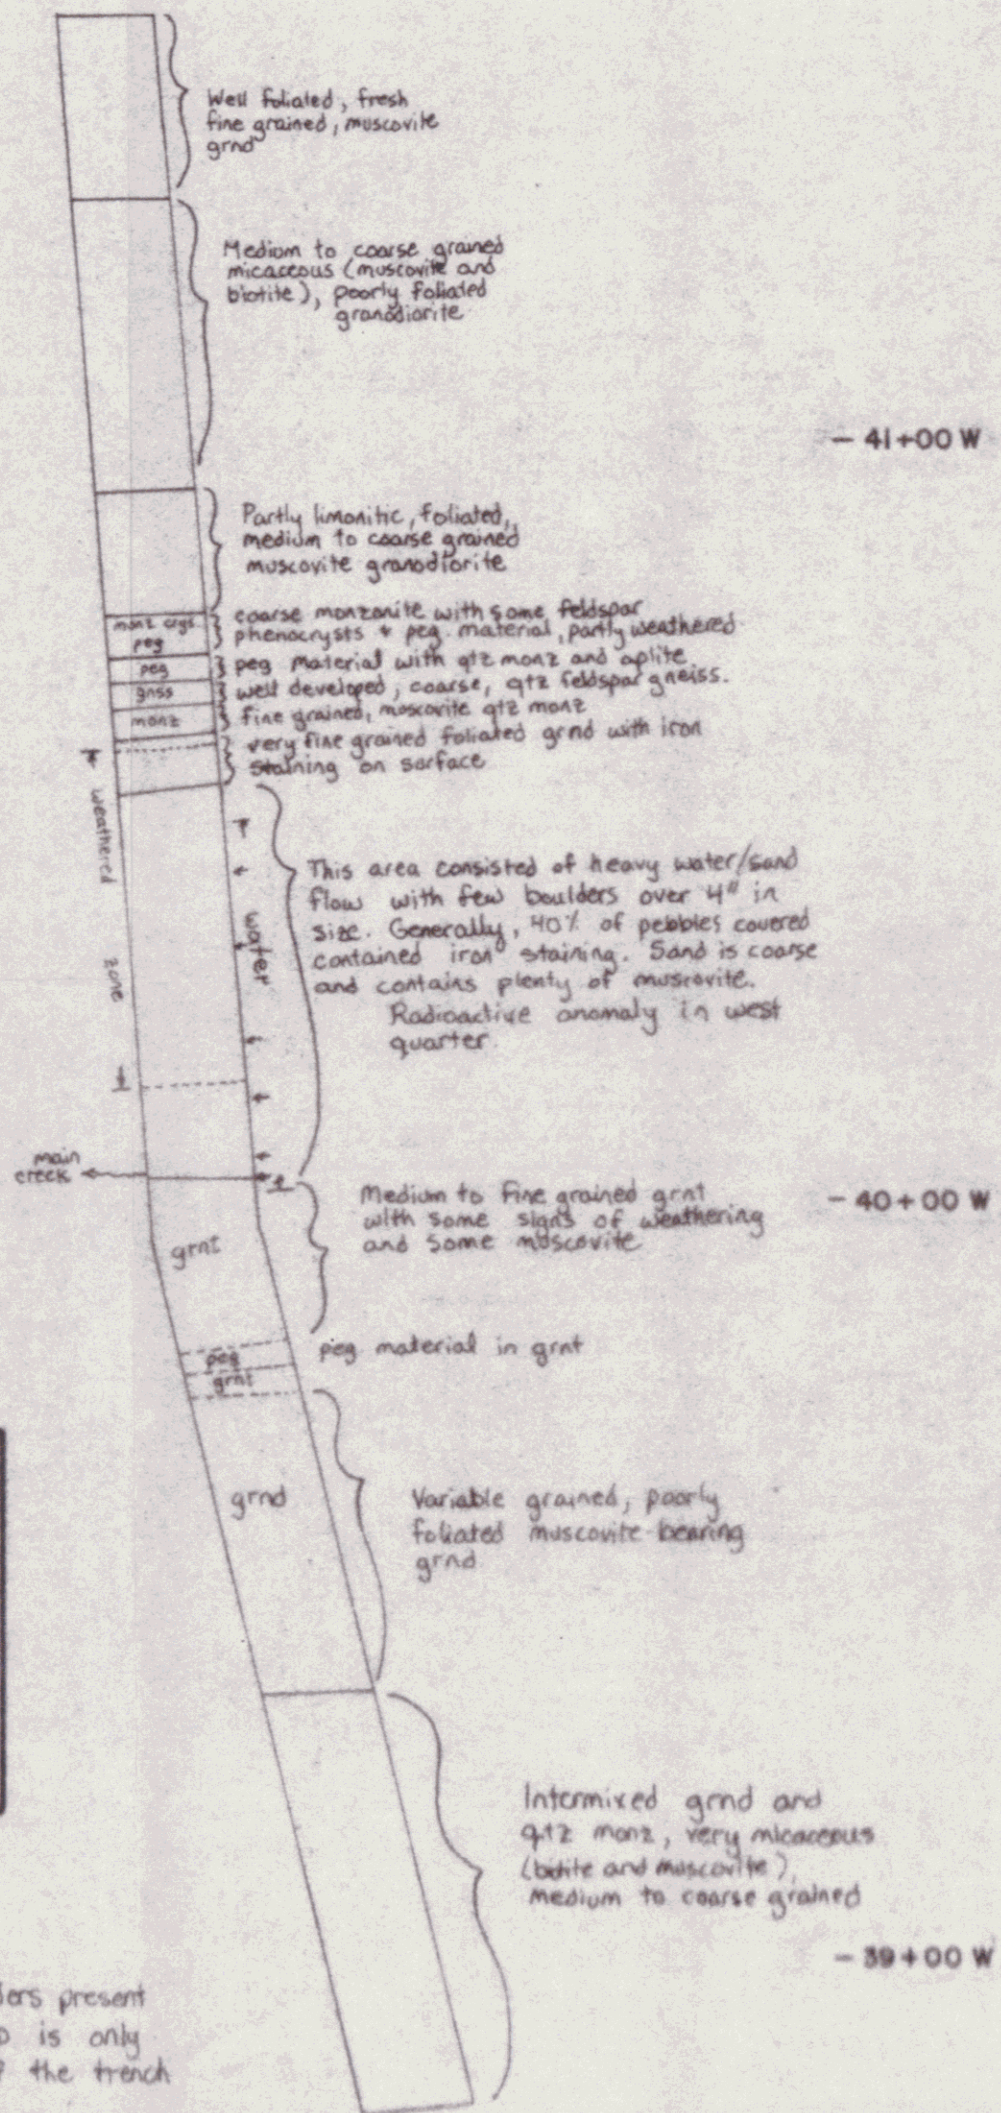 Well foliated, fresh
fine grained, muscovite
grnd
Medium to coarse grained
micaceous (muscovite and
biotite), poorly foliated
granodiorite
- 41+00 W
Partly limonitic, foliated,
medium to coarse grained
muscovite granodiorite
monz crgs
peg
coarse monzonite with some feldspar
phenocrysts + peg. material, partly weathered
peg
peg material with qtz monz and aplite
gnss
well developed, coarse, qtz feldspar gneiss.
monz
fine grained, moscovite qtz monz
very fine grained foliated grnd with iron
staining on surface
weathered
zone
water
This area consisted of heavy water/sand
flow with few boulders over 4" in
size. Generally, 40% of pebbles covered
contained iron staining. Sand is coarse
and contains plenty of muscovite.
Radioactive anomaly in west
quarter.
main
creek
Medium to fine grained grnt
with some signs of weathering
and some muscovite
- 40+00 W
grnt
peg
peg material in grnt
grnt
grnd
Variable grained, poorly
foliated muscovite-bearing
grnd
Intermixed grnd and
qtz monz, very micaceous
(botite and muscovite),
medium to coarse grained
- 39+00 W
ders present
is only
the trench